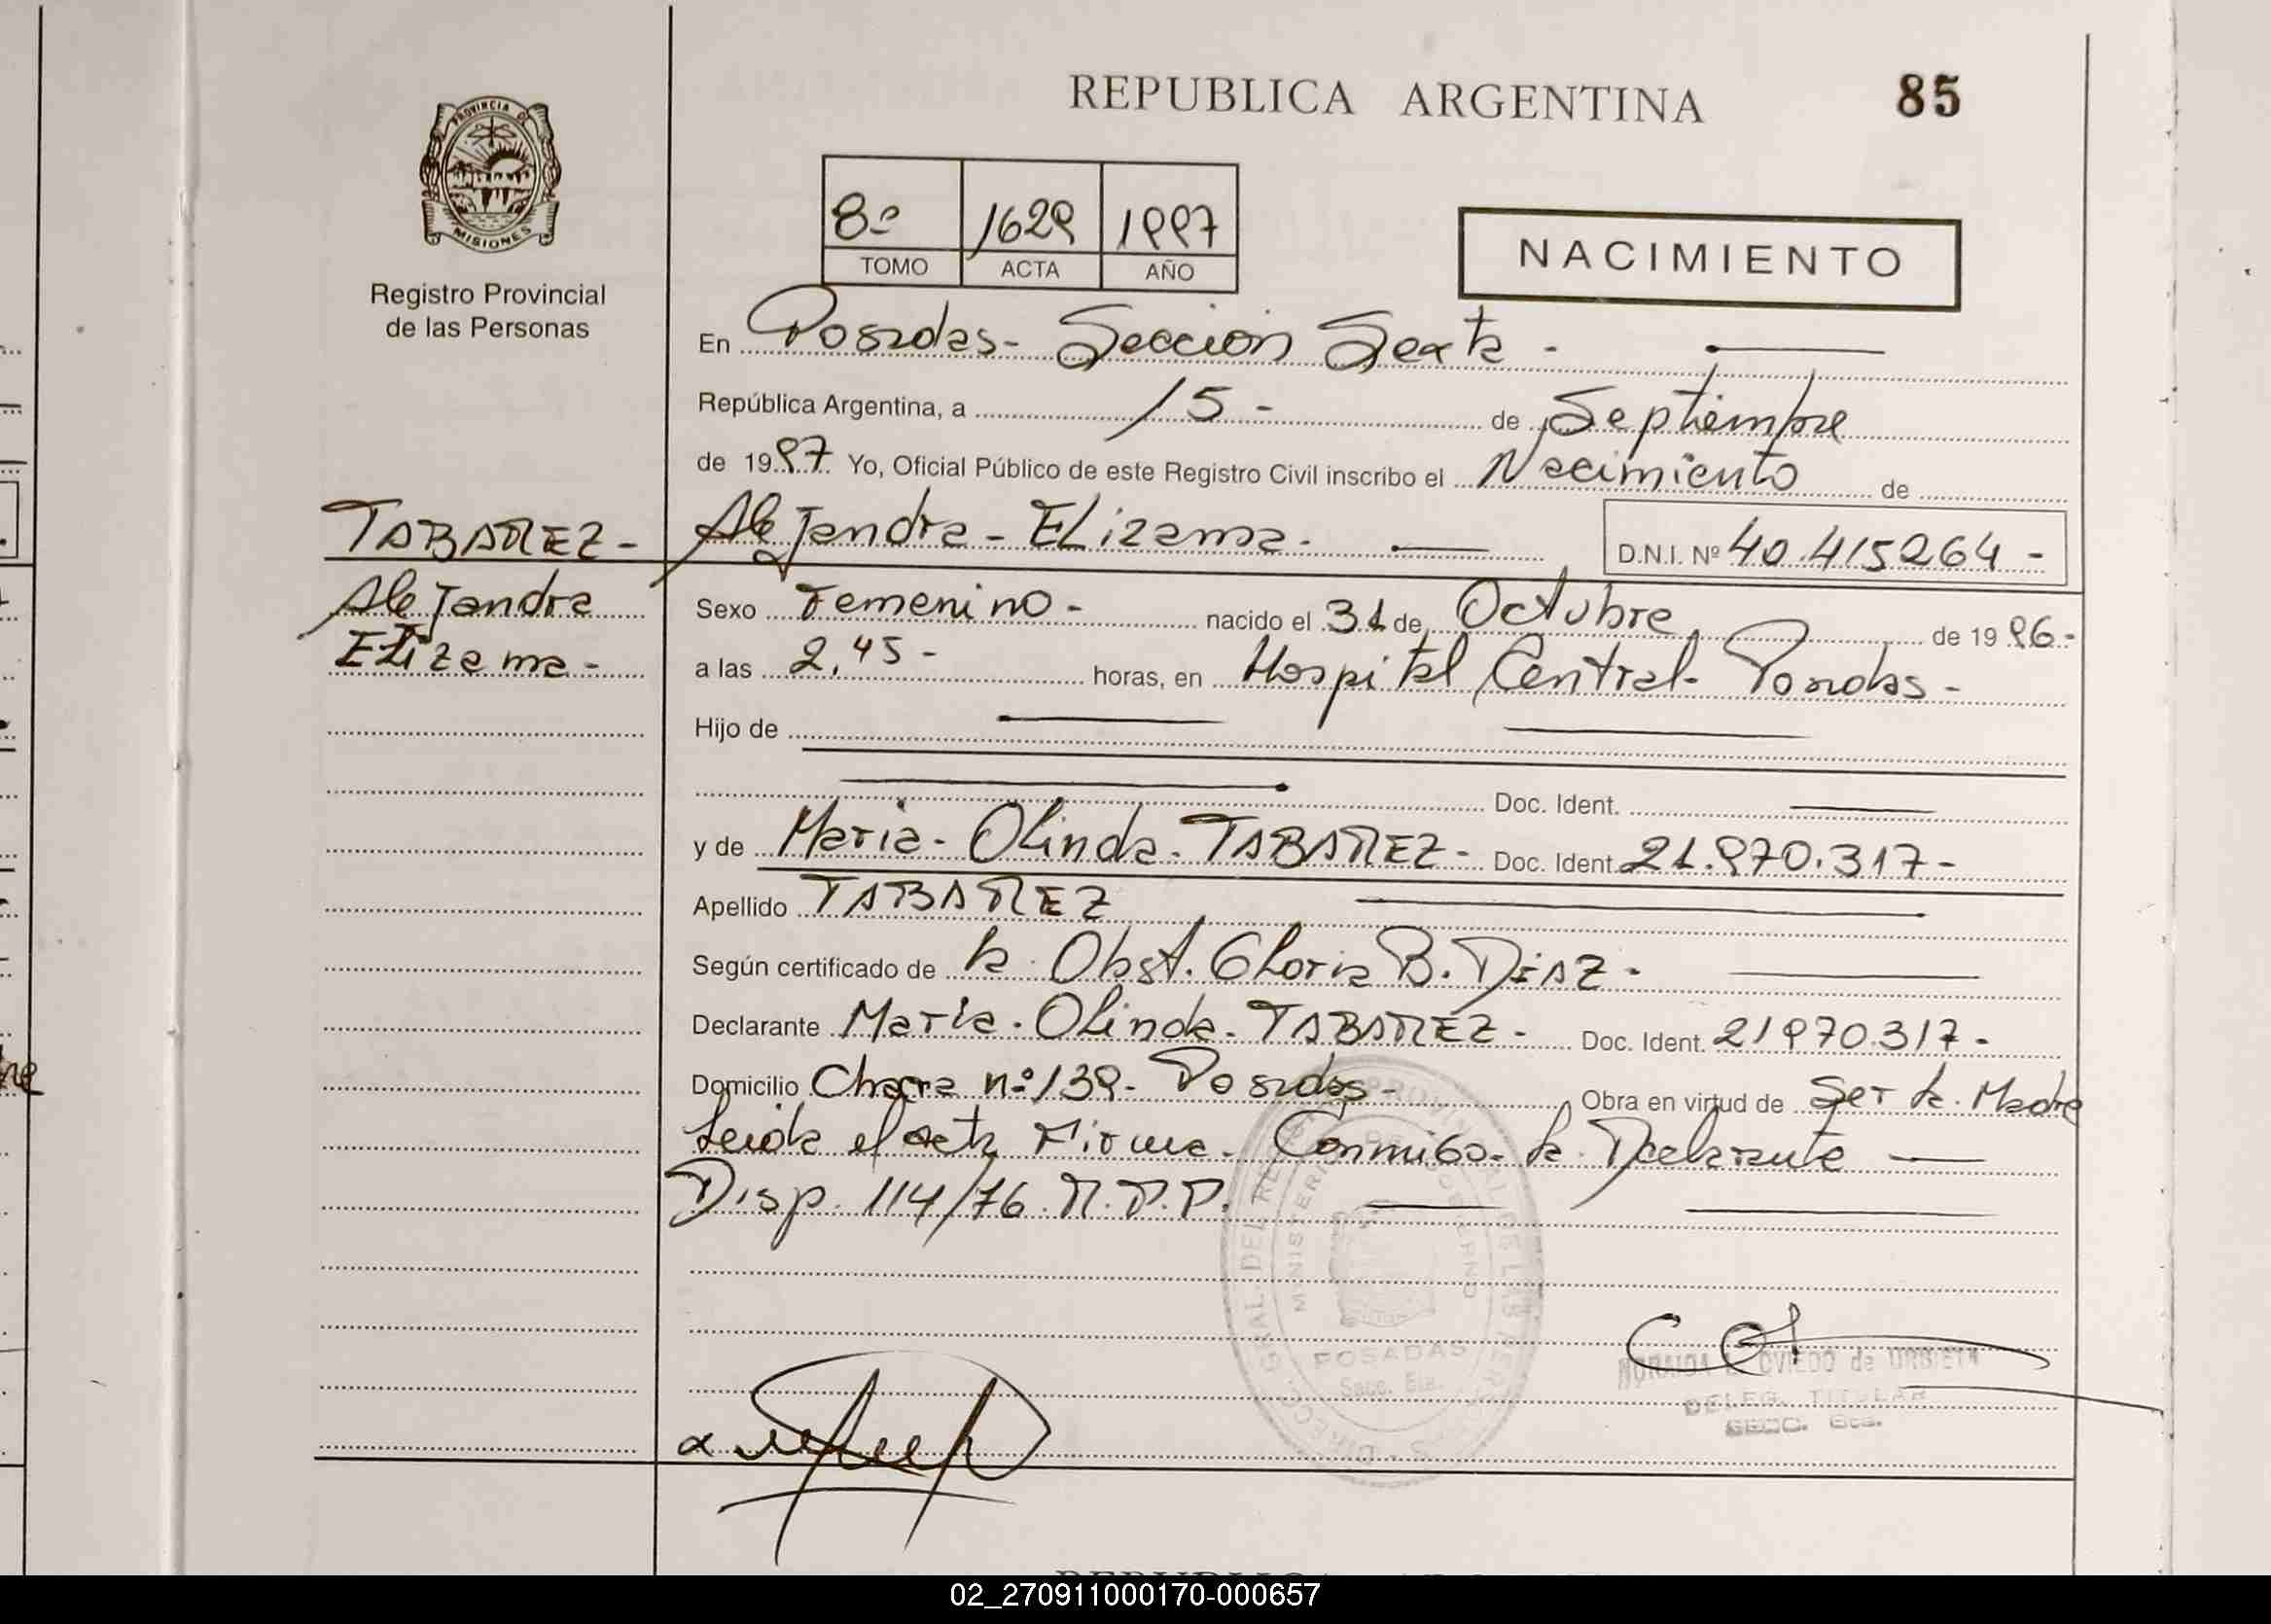 REPUBLICA ARGENTINA
85
PROVINCIA DE
MISIONES
Registro Provincial
de las Personas
8º 1629 1997
TOMO ACTA AÑO
NACIMIENTO
En Posadas - Sección Sexta -
República Argentina, a 15 - de Septiembre
de 1997 Yo, Oficial Público de este Registro Civil inscribo el Nacimiento de
TABAREZ - Alejandra - Elizama. D.N.I. Nº 40.415264 -
Alejandra
Elizama -
Sexo Femenino - nacido el 31 de Octubre de 1996 -
a las 2,45 - horas, en Hospital Central - Posadas -
Hijo de
Doc. Ident.
y de Maria - Olinda - TABAREZ - Doc. Ident. 21.970.317 -
Apellido TABAREZ
Según certificado de la Obst. Gloria B. DiAZ -
Declarante Maria - Olinda - TABAREZ - Doc. Ident. 21970.317 -
Domicilio Chacra nº 139 - Posadas - Obra en virtud de Ser la Madre
Leida el acta Firma - Conmigo - la Declarante
Disp. 114/76 R.P.P.
POSADAS
Secc. 6ta.
OVIEDO de URBIETA
DELEG. TITULAR
SECC. 6ta.
02_270911000170-000657